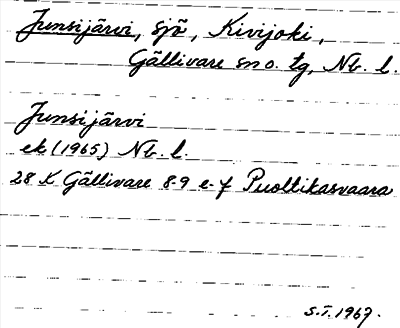 Junsijärvi, sjö, Kivijoki,
Gällivare sn o. tg, Nb. l.
Junsijärvi
ek (1965) Nb. l.
28 K Gällivare 8-9 e-f Puoltikasvaara
S.I. 1967.